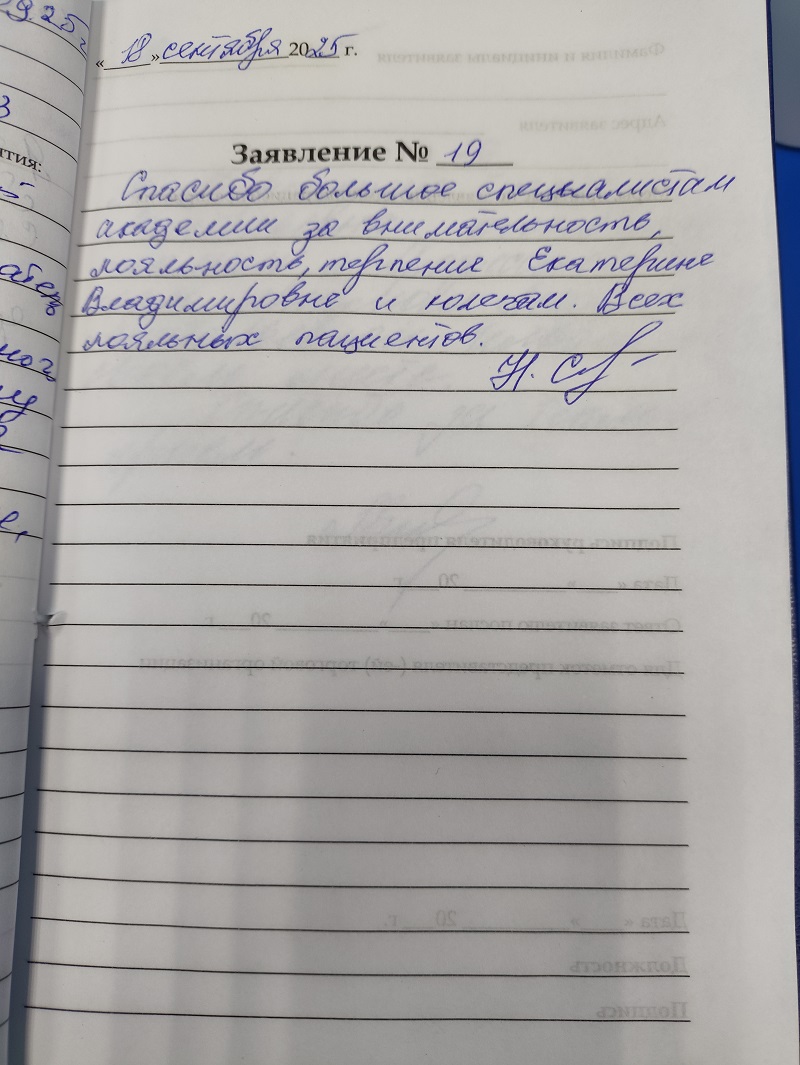 «18» сентября 2025 г.
Заявление № 19
Спасибо большое специалистам
академии за внимательность,
лояльность, терпение Екатерине
Владимировне и колегам. Всех
лояльных пациентов.
Н. С